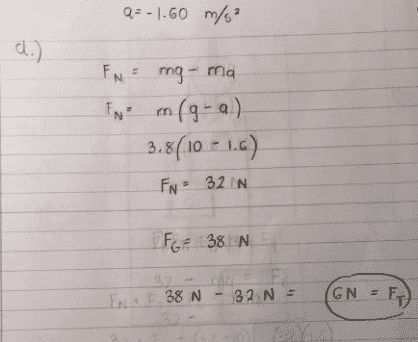 a = -1.60 m/s²
d.)
F_N = mg - ma
F_N = m(g-a)
3.8(10 - 1.6)
F_N = 32 N
F_G = 38 N
38 N - 32 N = 6N = F_T